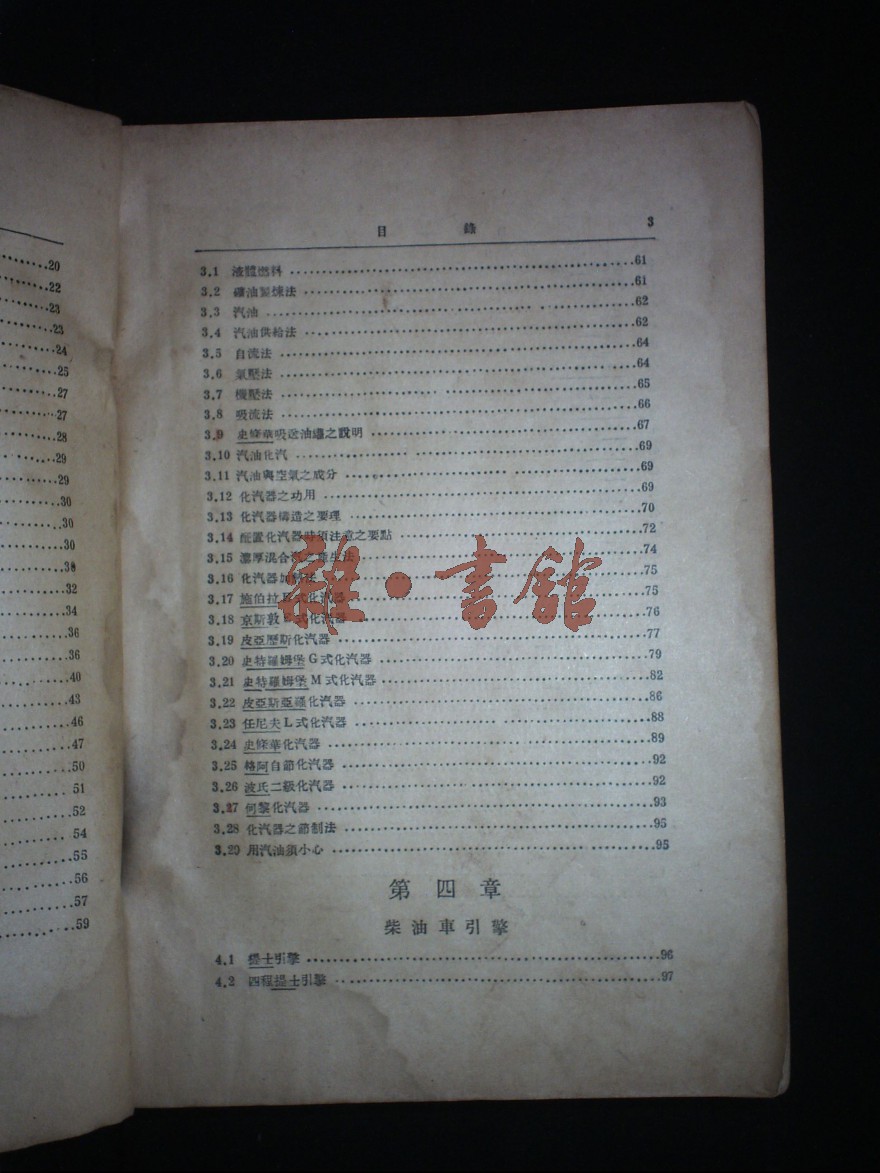 20
22
23
23
24
25
27
27
28
29
29
30
30
30
38
32
34
36
36
40
43
46
47
50
51
52
54
55
56
57
59
目 錄 3
3.1 液體燃料 61
3.2 礦油製煉法 61
3.3 汽油 62
3.4 汽油供給法 62
3.5 自流法 64
3.6 氣壓法 64
3.7 機壓法 65
3.8 吸流法 66
3.9 史條華吸送油繼之說明 67
3.10 汽油化汽 69
3.11 汽油與空氣之成分 69
3.12 化汽器之功用 69
3.13 化汽器構造之要理 70
3.14 配置化汽器時須注意之要點 72
3.15 濃厚混合汽之產生法 74
3.16 化汽器加熱法 75
3.17 施伯拉 式化汽器 75
3.18 京斯敦 式化汽器 76
3.19 皮亞歷斯化汽器 77
3.20 史特羅姆堡G式化汽器 79
3.21 史特羅姆堡M式化汽器 82
3.22 皮亞斯亞羅化汽器 86
3.23 任尼夫L式化汽器 88
3.24 史條華化汽器 89
3.25 格阿自節化汽器 92
3.26 波氏二級化汽器 92
3.27 何黎化汽器 93
3.28 化汽器之節制法 95
3.29 用汽油須小心 95
第四章
柴油車引擎
4.1 提士引擎 96
4.2 四程提士引擎 97
雜·書館